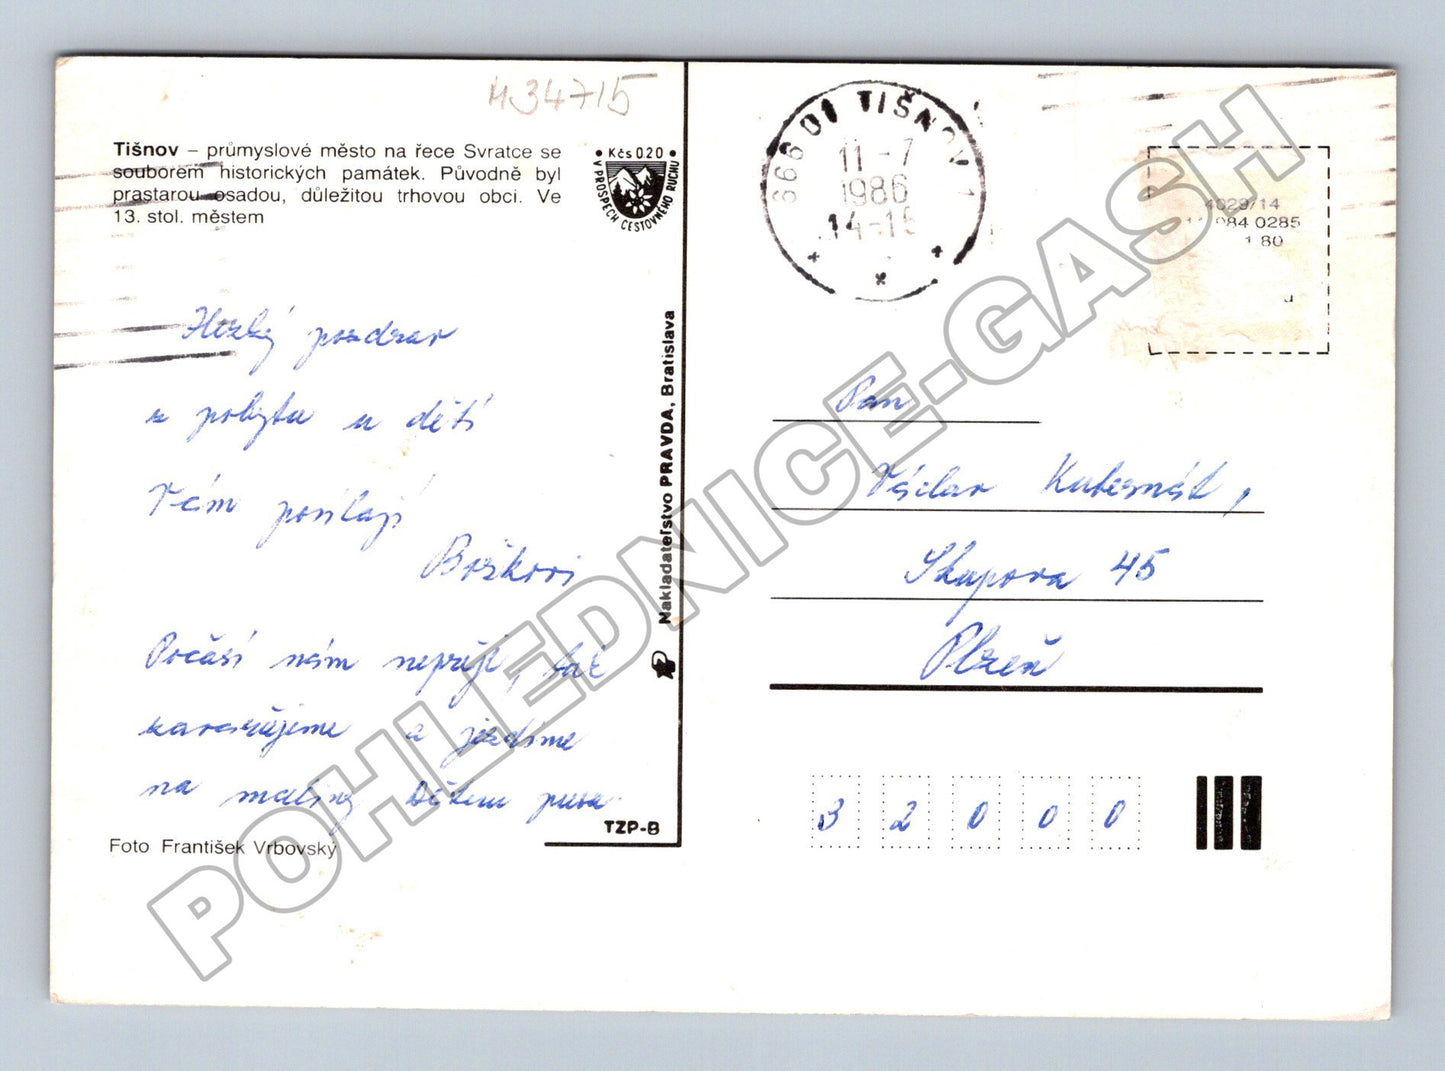 434715
Tišnov – průmyslové město na řece Svratce se
souborem historických památek. Původně byl
prastarou osadou, důležitou trhovou obcí. Ve
13. stol. městem
• Kčs 0.20 •
V PROSPĚCH CESTOVNÉHO RUCHU
Hezký pozdrav
z pobytu u dětí
Vám posílají
Boškovi
Počasí nám nepřeje, tak
zavařujeme a jezdíme
na maliny
Foto František Vrbovský
TZP-8
Nakladateľstvo PRAVDA, Bratislava
666 01 TIŠNOV 1
11 -7
1986
14-15
4029/14
084 0285
1 80
Pan
Václav Kubernát,
Skupova 45
Plzeň
3 2 0 0 0
POHLEDNICE-GASH